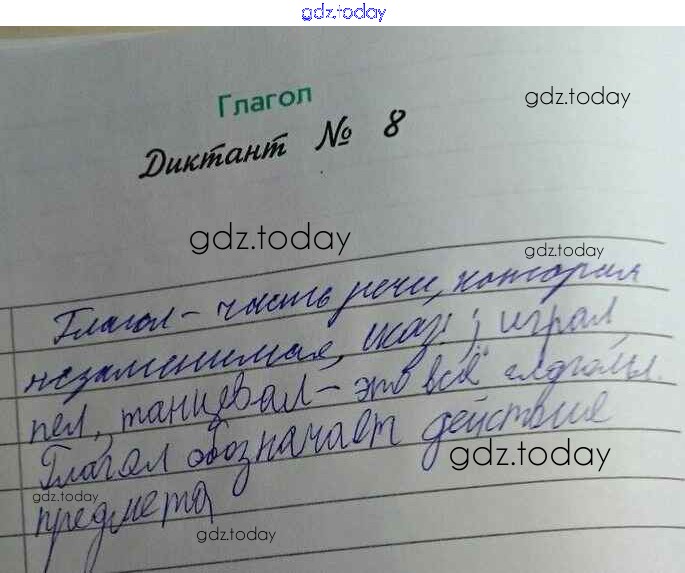 gdz.today
Глагол
gdz.today
Диктант № 8
gdz.today
gdz.today
Глагол - часть речи, которая
незаменимая, играл,
пел, танцевал - это всё глаголы.
Глагол обозначает действие
gdz.today
gdz.today
предмета
gdz.today